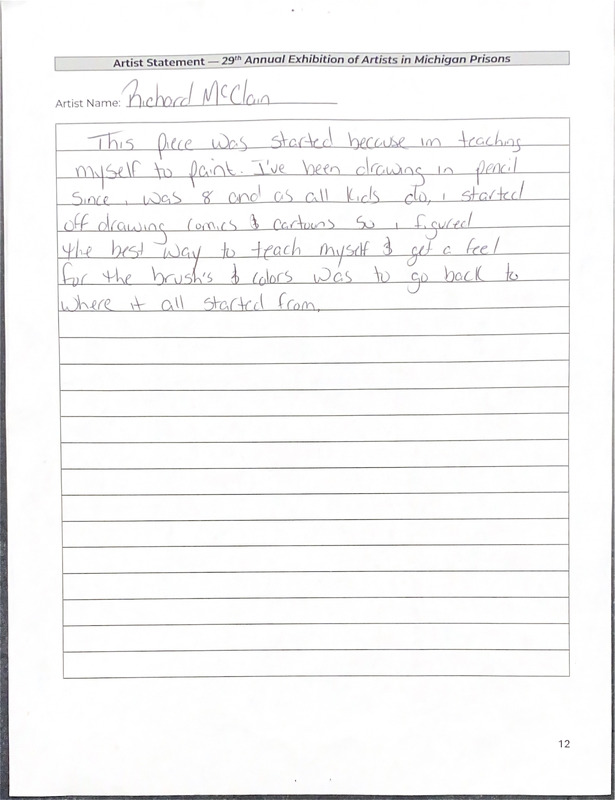 Artist Statement — 29th Annual Exhibition of Artists in Michigan Prisons
Artist Name: Richard McClain
This piece was started because im teaching
myself to paint. I've been drawing in pencil
since i was 8 and as all kids do, i started
off drawing comics & cartoons so i figured
the best way to teach myself & get a feel
for the brush's & colors was to go back to
where it all started from.
12